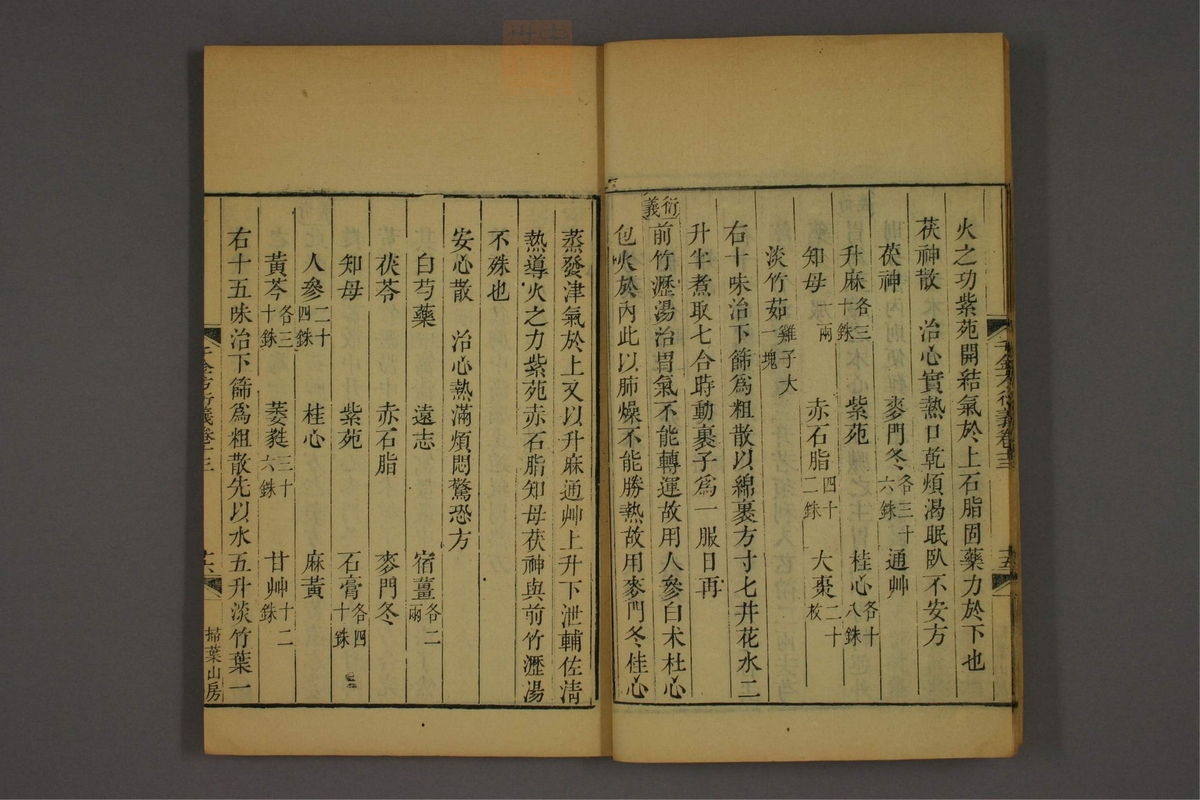 火之功紫苑開結氣於上石脂固藥力於下也
茯神散　治心實熱口乾煩渴眠臥不安方
茯神　麥門冬各三十六銖　通艸
升麻各三十銖　紫苑　桂心各十八銖
知母一兩　赤石脂四十二銖　大棗二十枚
淡竹茹雞子大一塊
右十味治下篩爲粗散以綿裹方寸七井花水二
升半煮取七合時動裹子爲一服日再
衍義
前竹瀝湯治胃氣不能轉運故用人參白朮杜心
包火於內此以肺燥不能勝熱故用麥門冬桂心
千金方衍義卷十三
十五
蒸發津氣於上又以升麻通艸上升下泄輔佐淸
熱導火之力紫苑赤石脂知母茯神與前竹瀝湯
不殊也
安心散　治心熱滿煩悶驚恐方
白芍藥　遠志　宿薑各二兩
茯苓　赤石脂　麥門冬
知母　紫苑　石膏各四十銖
人參二十四銖　桂心　麻黃
黃芩各三十銖　萎蕤三十六銖　甘艸十二銖
右十五味治下篩爲粗散先以水五升淡竹葉一
千金方衍義卷十三
十六
掃葉山房